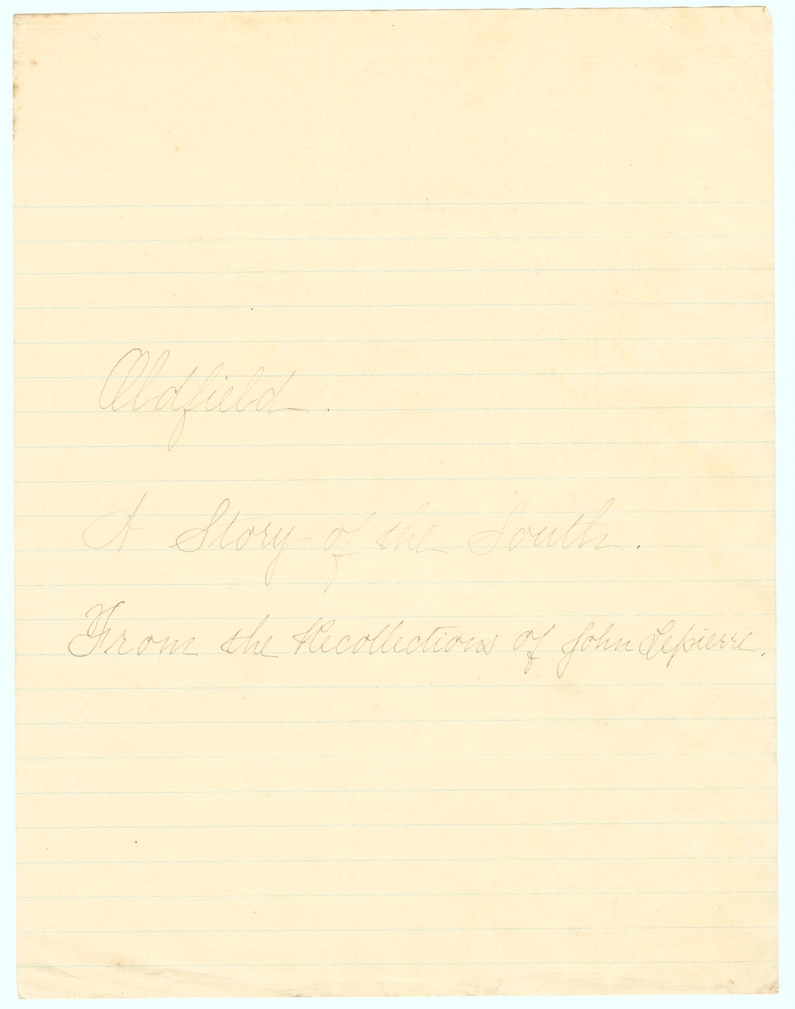 Oldfield.
A Story of the South.
From the Recollections of John Lepierre.